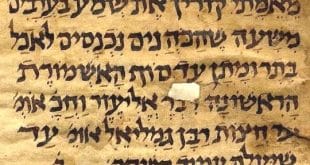 מאמתי קורין את שמע בערבים
משעה שהכהנים נכנסים לאכל
בתרומתן עד סוף האשמורת
הראשונה דבר אליעזר וחכ אומ׳
עד חצות רבן גמליאל אומ׳ עד